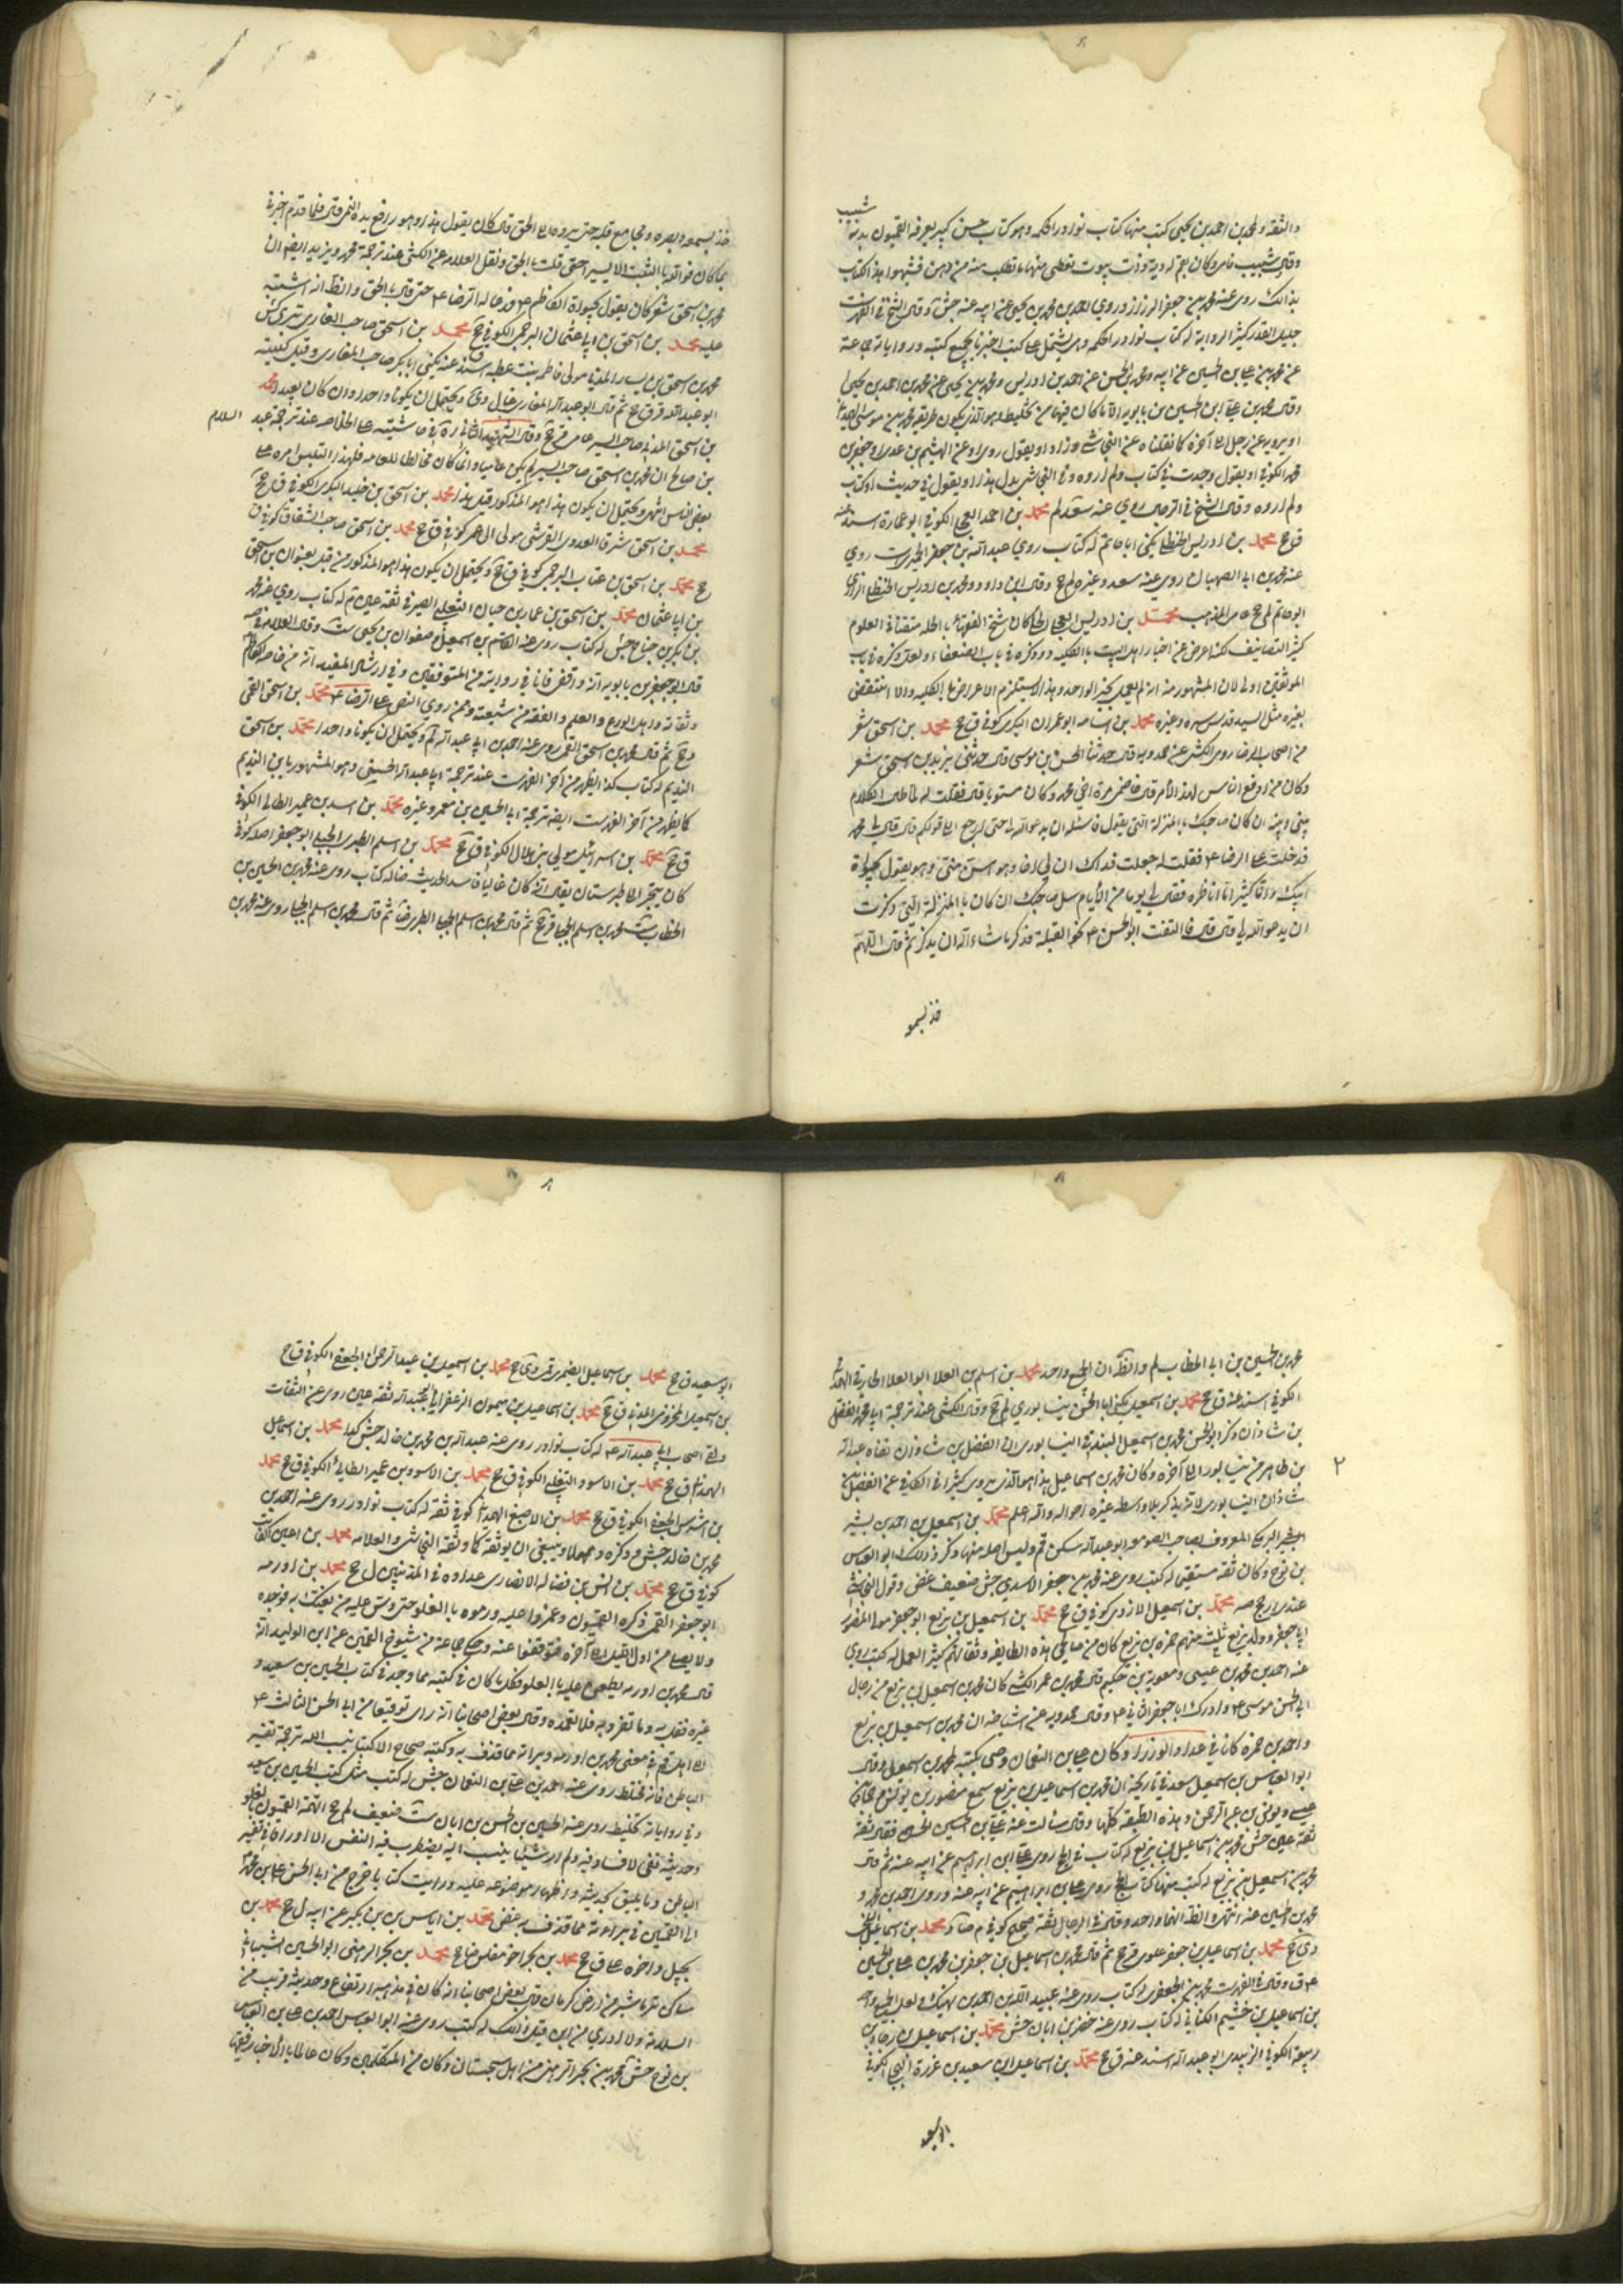 شبيب
والثقة ولمحمد بن احمد بن يحيى كتب منها كتاب نوادر الحكمة وهو كتاب حسن كبير يعرفه القميون بدبة
وقال شبيب فامي كان بقم له دبة ذات بيوت يعطي منها ما يطلب منه من دهن فشبهوا هذا الكتاب
بذلك روى عنه محمد بن جعفر الرزاز وروى احمد بن محمد بن يحيى عن ابيه عنه جش وقال الشيخ في الفهرست
جليل القدر كثير الرواية له كتاب نوادر الحكمة وهي يشتمل على كتب اخبرنا بجميع كتبه ورواياته جماعة
عن محمد بن علي بن الحسين عن ابيه ومحمد بن الحسن عن احمد بن ادريس ومحمد بن يحيى عن محمد بن احمد بن يحيى
وقال محمد بن علي ابن الحسين بن بابويه الا ما كان فيها من تخليط وهو الذي يكون طريقه محمد بن موسى الهمداني
او يرويه عن رجل الى آخره كما نقلناه عن النجاشي وزاد او يقول روي او عن الهيثم بن عدي او جعفر بن
محمد الكوفي او يقول وجدت في كتاب ولم اروه وفي النجاشي بدل هذا او يقول في حديث او كتاب
ولم اروه وقال الشيخ في الرجال روى عنه سعد لم محمد بن احمد العجلي الكوفي ابو عمارة اسند عنه
ق ج محمد بن ادريس الحنظلي يكنى ابا حاتم له كتاب روى عبد الله بن جعفر الحميري ست روى
عنه محمد بن ابي الصهبان روى عنه سعد وغيره لم ج وقال ابن داود ومحمد بن ادريس الحنظلي الرازي
ابو حاتم لم ج عامي المذهب محمد بن ادريس العجلي الحلي كان شيخ الفقهاء بالحلة متقنا في العلوم
كثير التصانيف لكنه اعرض عن اخبار اهل البيت بالكلية د وذكره في باب الضعفاء ولعل ذكره في باب
الموثقين اولى لان المشهور منه انه لم يعمل بخبر الواحد وهذا لا يستلزم الاعراض بالكلية والا انتقض
بغيره مثل السيد قدس سره وغيره محمد بن اسامة ابو عمران البكري كوفي ق ج محمد بن اسحق شعر
من اصحاب الرضا روى الكشي عن حمدويه قال حدثنا الحسن بن موسى قال حدثني يزيد بن اسحق شعر
وكان من ادفع الناس لهذا الامر قال خاصمني مرة اخي محمد وكان مستويا قال فقلت له لما طال الكلام
بيني وبينه ان كان صاحبك بالمنزلة التي يقول فاسئله ان يدعو الله لي حتى ارجع الى قولكم قال قال لي محمد
فدخلت على الرضا ع فقلت له جعلت فداك ان لي اخا وهو اسن مني وهو يقول بحيوة
ابيك وانا كثيرا ما اناظره فقال لي يوما من الايام سل صاحبك ان كان بالمنزلة التي ذكرت
ان يدعو الله لي قال قال فالتفت ابو الحسن ع نحو القبلة فذكر ما شاء الله ان يذكر ثم قال اللهم
خذ بسمعه
خذ بسمعه وبصره ومجامع قلبه حتى ترده الى الحق قال كان يقول هذا وهو رافع يده اليمنى قال فلما قدم اخبرني
بما كان فوالله ما لبثت الا يسيرا حتى قلت بالحق ونقل العلامة عن الكشي عند ترجمة محمد ويزيد ايضا ان
محمد بن اسحق شعر كان يقول بحيوة الكاظم ع فدعا له الرضا ع حتى قال بالحق والظاهر انه اشتبه
عليه محمد بن اسحق بن ابي عثمان البرجمي الكوفي ق ج محمد بن اسحق صاحب المغازي بتري كش
محمد بن اسحق بن يسار المدني مولى فاطمة بنت عقبة اسند عنه يكنى ابا بكر صاحب المغازي وقيل كنيته
ابو عبد الله قر ق ج ثم قال ابو عبد الله المغازي
بن اسحق المدني صاحب السير عامي ق ج وقال الشهيد الثاني ره في حاشيته على الخلاصة عند ترجمة عبد السلام
بن صالح ان محمد بن اسحق صاحب السير لم يكن عاميا وانما كان مخالطا للعامة فلهذا التبس امره على
بعض الناس انتهى ويحتمل ان يكون هذا هو المذكور قبل هذا محمد بن اسحق بن خليد البكري الكوفي ق ج
محمد بن اسحق شرفا العدوي القرشي مولى ال عمر كوفي ق ج محمد بن اسحق صاحب الشقاق كوفي ق
ج محمد بن اسحق بن عتاب البرجمي كوفي ق ج ويحتمل ان يكون هذا هو المذكور من قبل بعنوان بن اسحق
بن ابي عثمان محمد بن اسحق بن عمار بن حيان التغلبي الصيرفي ثقة عين م له كتاب روى عنه محمد
بن بكر بن جناح جش له كتاب روى عنه القاسم بن اسمعيل وصفوان بن يحيى ست وقال العلامة في صه
قال ابو جعفر بن بابويه انه واقفي فانا في روايته من المتوقفين وفي ارشاد المفيد انه من خاصة الكاظم
وثقاته واهل الورع والعلم والفقه من شيعته وممن روى النص على الرضا ع محمد بن اسحق القمي
د ج ثم قال محمد بن اسحق القمي روى عنه احمد بن ابي عبد الله لم ويحتمل ان يكونا واحدا محمد بن اسحق
النديم له كتاب كذا يظهر من آخر الفهرست عند ترجمة ابي عبد الله الحسيني وهو المشهور بابن النديم
كما يظهر من آخر الفهرست ايضا ترجمة ابي الحسين بن معمر وغيره محمد بن اسد بن عمير الطائي الكوفي
ق ج محمد بن اسرائيل مولى بني هلال الكوفي ق ج محمد بن اسلم الطبري الجبلي ابو جعفر اصله كوفي
كان يتجر الى طبرستان يقال انه كان غاليا فاسد الحديث ضا له كتاب روى عنه محمد بن الحسين بن
الخطاب ست محمد بن اسلم الجبلي قر ج ثم قال محمد بن اسلم الجبلي الطبري ضا ثم قال محمد بن اسلم الجبلي روى عنه محمد بن
محمد بن الحسين بن ابي الخطاب لم والظاهر ان الجميع واحد محمد بن اسلم بن العلا ابو العلا الحارثي الهمداني
الكوفي اسند عنه ق ج محمد بن اسمعيل يكنى ابا الحسن نيشابوري لم ج وقال الكشي عند ترجمة ابي محمد الفضل
بن شاذان ذكر ابو الحسن محمد بن اسمعيل البندقي النيشابوري ان الفضل بن شاذان نفاه عبد الله
بن طاهر من نيشابور الى آخره وكان محمد بن اسماعيل هذا هو الذي يروي كثيرا في الكافي عن الفضل بن ٢
شاذان النيشابوري بلا واسطة غيره احواله والله اعلم محمد بن اسمعيل بن احمد بن بشير
البرمكي المعروف بصاحب الصومعة ابو عبد الله سكن قم وليس اصله منها ذكر ذلك ابو العباس
بن نوح وكان ثقة مستقيما له كتب روى عنه محمد بن جعفر الاسدي جش ضعيف غض وقول النجاشي
عندي ارجح صه محمد بن اسمعيل الازدي كوفي ق ج محمد بن اسمعيل بن بزيع ابو جعفر مولى المنصور
ابي جعفر وولد بزيع بيت منهم حمزه بن بزيع كان من صالحي هذه الطايفة وثقاتهم كثير العمل له كتب روى
عنه احمد بن محمد بن عيسى ومعوية بن حكيم قال محمد بن عمر الكشي كان محمد بن اسمعيل بن بزيع من رجال
ابي الحسن موسى ع وادرك ابا جعفر الثاني ع وقال حمدويه عن اشياخه ان محمد بن اسمعيل بن بزيع
واحمد بن حمزه كانا في عداد الوزراء وكان علي بن النعمان وصى بكتبه لمحمد بن اسمعيل وقال
ابو العباس بن اسمعيل بن سعيد في تاريخه ان محمد بن اسماعيل بن بزيع سمع منصور بن يونس وحماد بن
عيسى ويونس بن عبد الرحمن وهذه الطبقة كلها وقال سألت عنه علي بن الحسين فقال ثقة
ثقة عين جش محمد بن اسماعيل بن بزيع له كتاب في الحج روى علي ابن ابراهيم عن ابيه عنه ثم قال
محمد بن اسمعيل بن بزيع له كتب منها كتاب الحج روى علي بن ابراهيم عن ابيه عنه وروى احمد بن محمد و
محمد بن الحسين عنه انتهى الظاهر انهما واحد وقال في الرجال ثقة صحيح كوفي م ضا د محمد بن اسماعيل
دي ج محمد بن اسماعيل بن جعفر علوي ق ج ثم قال محمد بن اسماعيل بن جعفر بن محمد بن علي بن الحسين
ع ق وقال في الفهرست محمد بن الجعفري له كتاب روى عنه عبيد الله بن احمد بن نهيك
بن اسماعيل بن خثيم الكناني له كتاب روى عنه جعفر بن ابان جش محمد بن اسماعيل بن رجا بن
ربيعة الكوفي الزبيدي ابو عبد الله اسند عنه ق ج محمد بن اسماعيل بن سعيد بن عزرة البجلي كوفي
ابو سعيد
ابو سعيد ق ج محمد بن اسماعيل الصيمري قمي دي ج محمد بن اسمعيل بن عبد الرحمن الجعفي الكوفي ق ج
بن اسمعيل المخزومي المدني ق ج محمد بن اسماعيل بن ميمون الزعفراني ابو عبد الله ثقة عين روى عن الثقات
ولقي اصحاب ابي عبد الله ع له كتاب نوادر روى عنه عبد الله بن محمد بن خالد جش محمد بن اسماعيل
الهمداني ق ج محمد بن الاسود التغلبي الكوفي ق ج محمد بن الاسود بن عمير الطائي الكوفي ق ج محمد
بن اشرس الجعفي الكوفي ق ج محمد بن الاصبغ الهمداني كوفي ثقة له كتاب نوادر روى عنه احمد بن
محمد بن خالد جش د ذكره د مهملا وينبغي ان يوثقه كما وثقه النجاشي والعلامة محمد بن اعين الكاتب
كوفي ق ج محمد بن انس بن فضالة الانصاري عداده في المدنيين ل ج محمد بن اورمه
ابو جعفر القمي ذكره القميون وغمزوا عليه ورموه بالغلو حتى دس عليه من يفتك به فوجده
يصلي من اول الليل الى آخره فتوقفوا عنه وحكى جماعة من شيوخ القميين عن ابن الوليد انه
قال محمد بن اورمه يطعن عليه بالغلو فكل ما كان في كتبه مما وجد في كتاب الحسين بن سعيد و
غيره فقل به وما تفرد به فلا تعتمده وقال بعض اصحابنا انه راى توقيعا من ابي الحسن الثالث ع
الى اهل قم في معنى محمد بن اورمه وبراته مما قذف به وكتبه صحاح الا كتابا ينسب اليه ترجمة تفسير
الباطن فانه مختلط روى عنه احمد بن علي بن النعمان جش له كتب مثل كتب الحسين بن سعيد
وفي رواياته تخليط روى عنه الحسين بن الحسن بن ابان ست ضعيف لم ج اتهمه القميون بالغلو
وحديثه نقي لا فساد فيه ولم ار شيئا ينسب اليه يضطرب فيه النفس الا اوراقا في تفسير
الباطن وما يليق بحديثه واظنها موضوعة عليه ورايت كتابا خرج من ابي الحسن علي بن محمد ع
الى القميين في براءته مما قذف به غض محمد بن اياس بن بكير عن ابيه ل ج محمد بن
بجيل واخوه علي ق ج محمد بن بحر اخو مغلس ضا ج محمد بن بحر الرهني ابو الحسين الشيباني
ساكن نرماشير من ارض كرمان قال بعض اصحابنا انه كان في مذهبه ارتفاع وحديثه قريب من
السلامة ولا ادري من اين قيل ذلك له كتب روى عنه ابو العباس احمد بن علي بن العباس
بن نوح جش محمد بن بحر الرهني من اهل سجستان وكان من المتكلمين وكان عالما بالاخبار فقيها